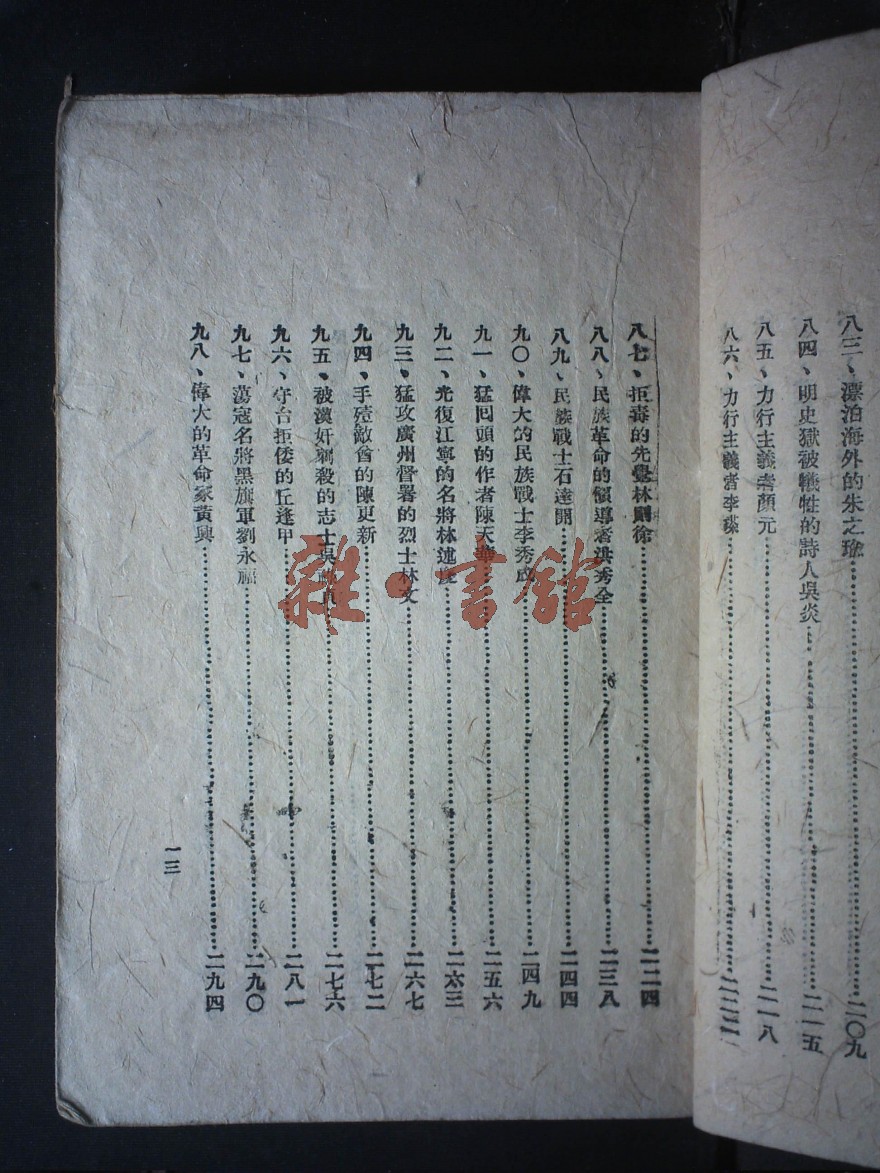 八三、漂泊海外的朱之瑜……二〇九
八四、明史獄被犧牲的詩人吳炎……二一五
八五、力行主義者顏元……二一八
八六、力行主義者李塨……二二二
八七、拒毒的先覺林則徐……二二四
八八、民族革命的領導者洪秀全……二三八
八九、民族戰士石達開……二四四
九〇、偉大的民族戰士李秀成……二四九
九一、猛回頭的作者陳天華……二五六
九二、光復江寧的名將林述慶……二六三
九三、猛攻廣州督署的烈士林文……二六七
九四、手殪敵酋的陳更新……二七二
九五、被漢奸刺殺的志士吳祿貞……二七六
九六、守台拒倭的丘逢甲……二八一
九七、蕩寇名將黑旗軍劉永福……二九〇
九八、偉大的革命家黃興……二九四
一三
雜·書館